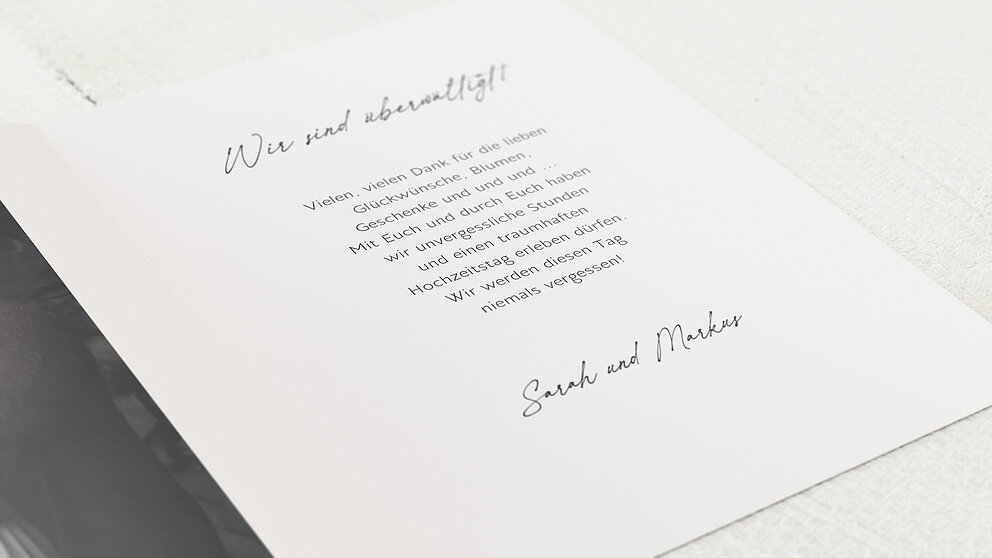 Wir sind überwältigt!
Vielen, vielen Dank für die lieben
Glückwünsche, Blumen,
Geschenke und und und ...
Mit Euch und durch Euch haben
wir unvergessliche Stunden
und einen traumhaften
Hochzeitstag erleben dürfen.
Wir werden diesen Tag
niemals vergessen!
Sarah und Markus